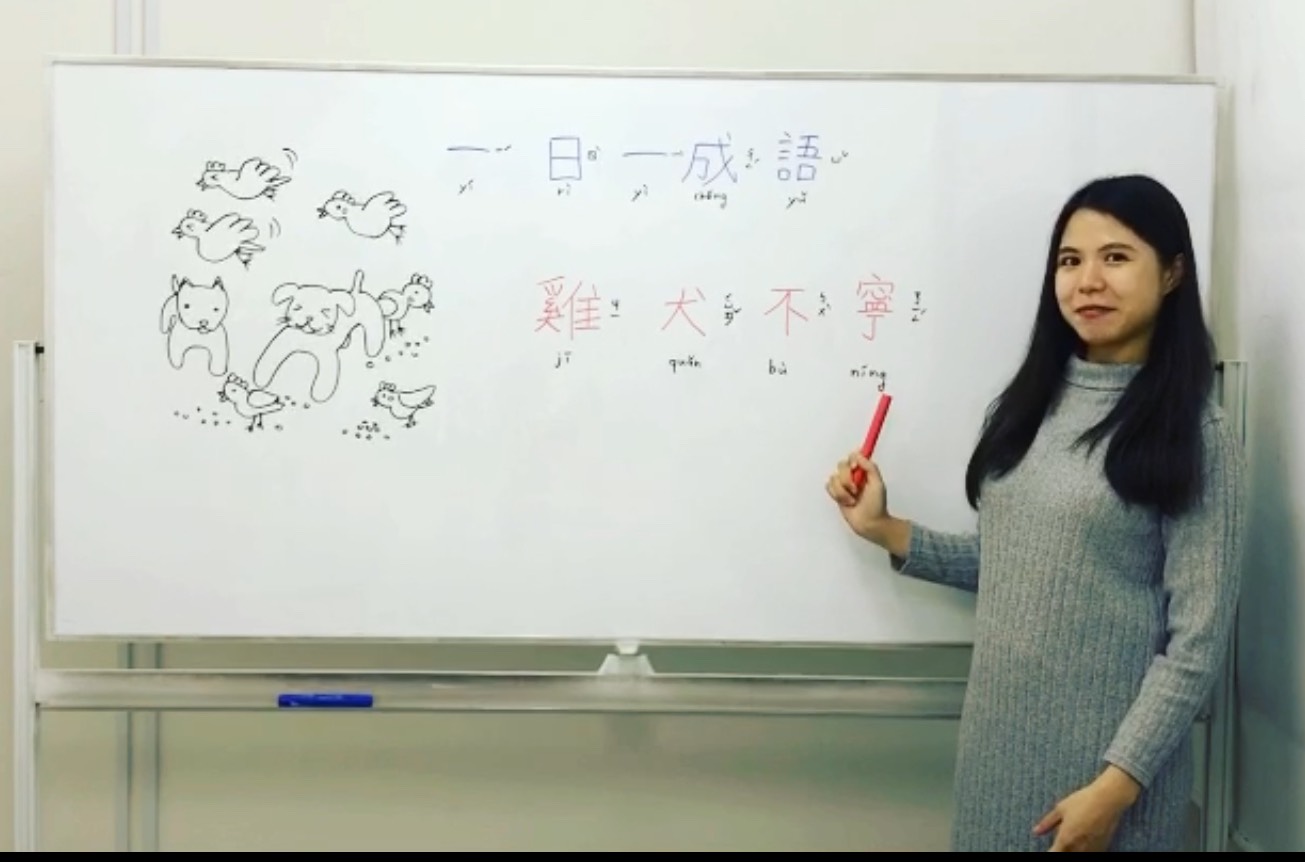 一 日 一 成 語
yí rì yì chéng yǔ
雞 犬 不 寧
jī quǎn bù níng